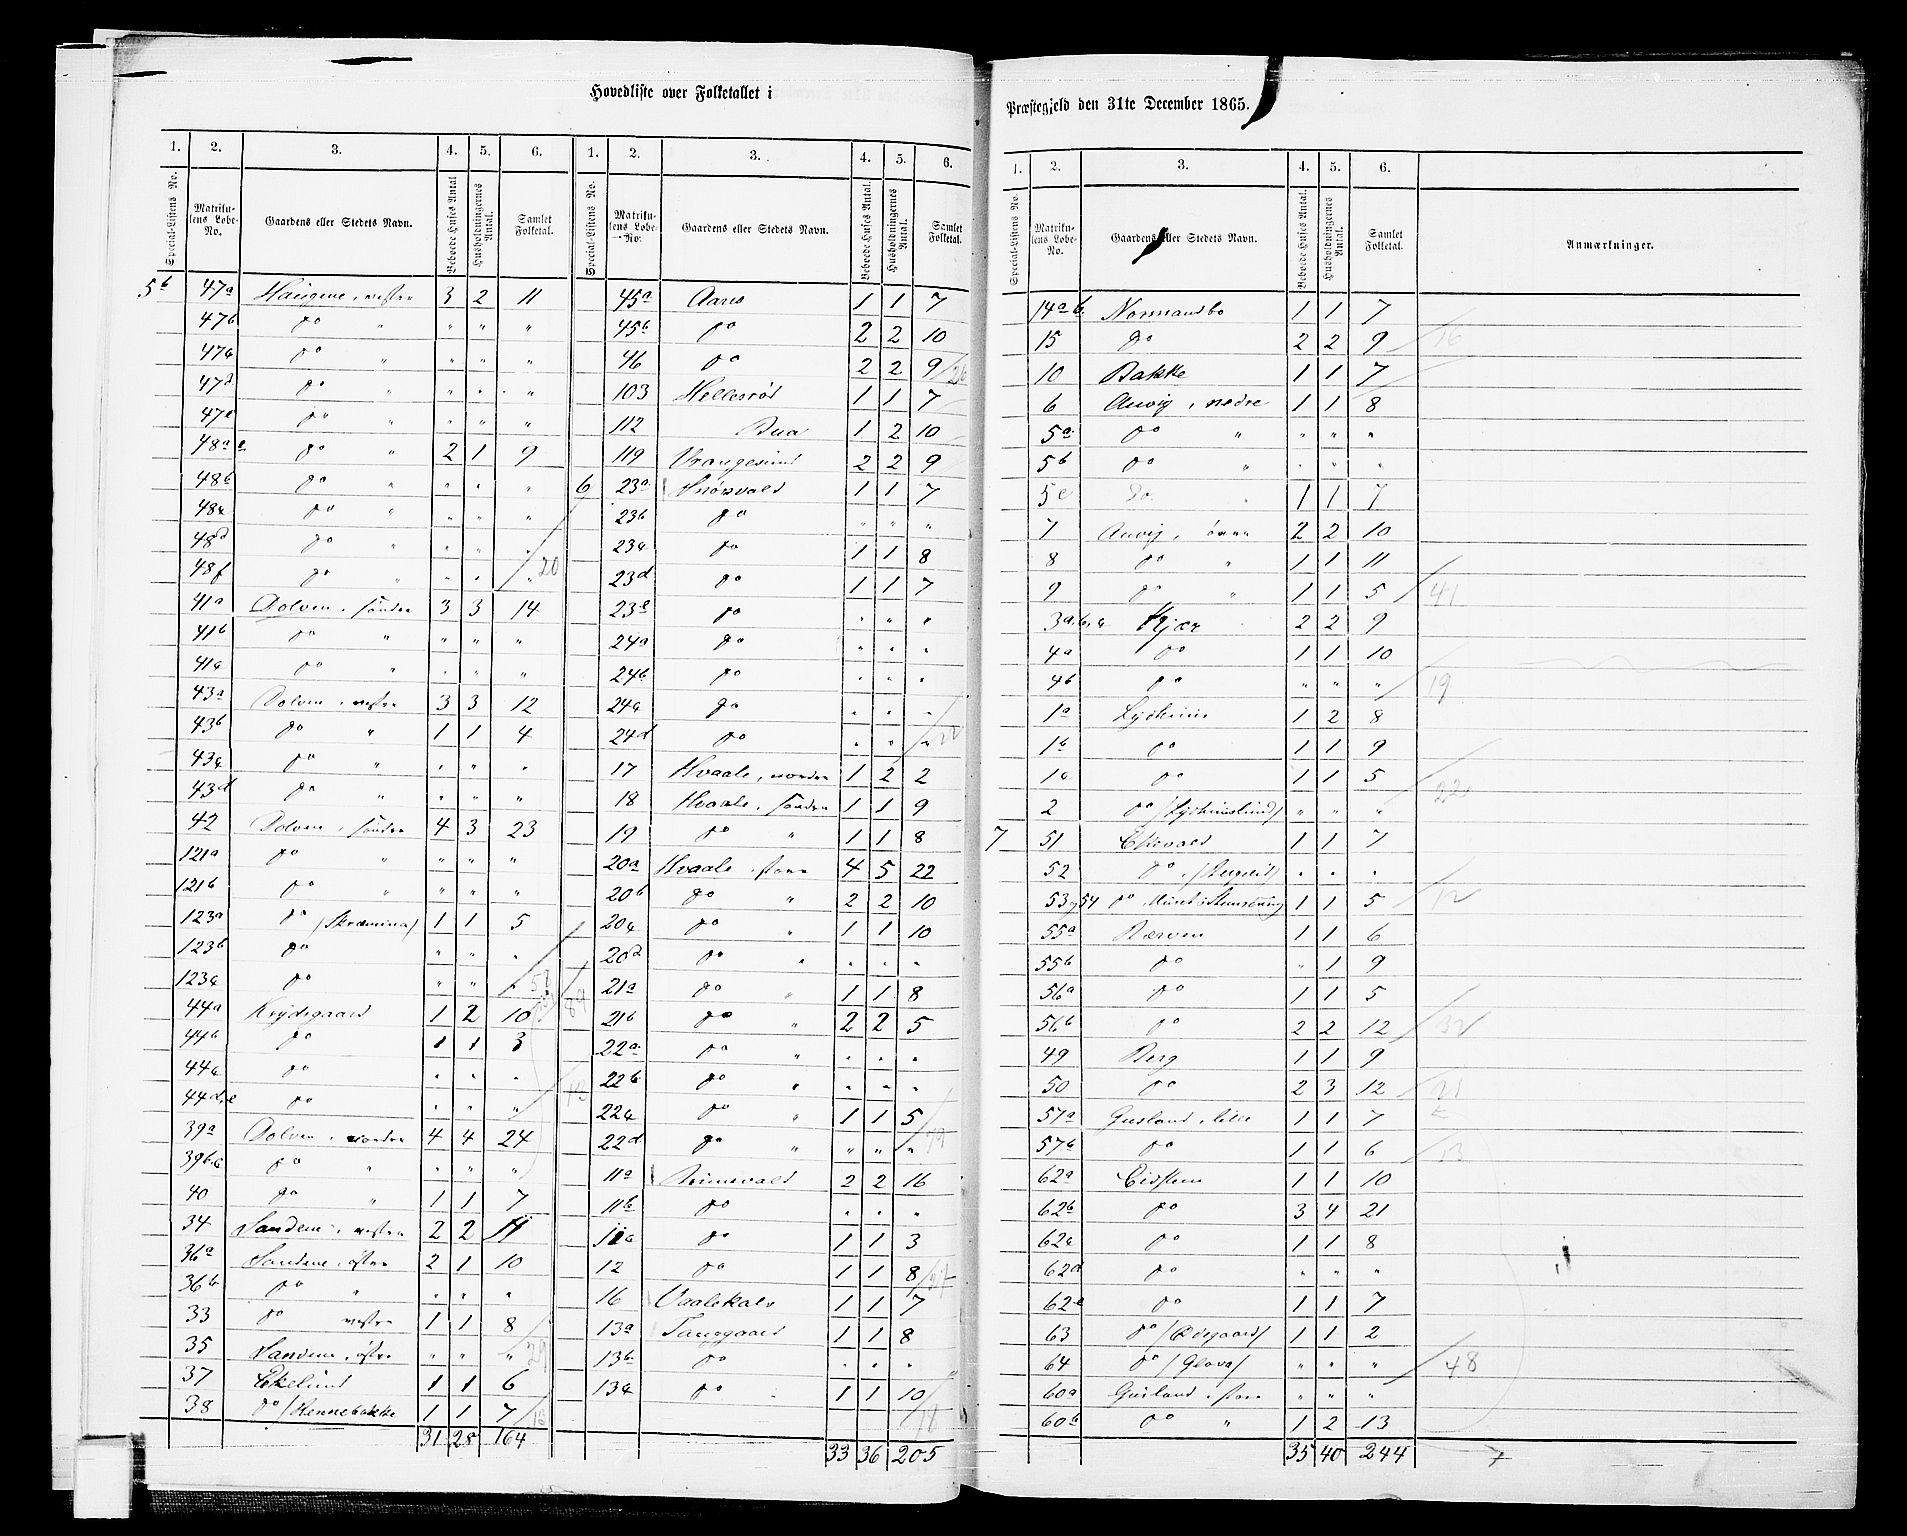 Hovedliste over Folketallet i
1. 2. 3. 4. 5. 6. 1. 2. 3. 4. 5. 6.
Special-Listens No. Matrikulens Løbe-No. Gaardens eller Stedets Navn. Beboede Huses Antal Husholdningernes Antal. Samlet Folketal. Special-Listens No. Matrikulens Løbe-No. Gaardens eller Stedets Navn. Beboede Huses Antal. Husholdningernes Antal. Samlet Folketal.
5b 47a Haugene, vestre 3 2 11
47b do " " " "
47c do " " " "
47d do " " " "
47e do " " " "
48a e do " 2 1 9
48b do " " " "
48c do " " " "
48d do " " " "
48f do " " " " 20
41a Dolven, søndre 3 3 14
41b do " " " "
41c do " " " "
43a Dolven, vestre 3 3 12
43b do " 1 1 4
43c do " " " "
43d do " " " "
42 Dolven, søndre 4 3 23
121a do " " " "
121b do " " " "
123a do (Skræmina) 1 1 5
123b do " " "
123c do " " "
44a Krydsgaard 1 2 10
44b do 1 1 3
44c do " " "
44d,e do " " "
39a Dolven, nordre 4 4 24
39b,c do " " " "
40 do " 1 1 7
34 Sandene, vestre 2 2 11
36a Sandene, østre 2 1 10
36b do " " " "
33 do vestre 1 1 8
35 Sandene, østre " " " 29
37 Ekelund 1 1 6
38 do (Hennebakke 1 1 7
31 28 164
45a Aarø 1 1 7
45b do 2 2 10
46 do 2 2 9 26
103 Hellesrød 1 1 7
112 Bua 1 2 10
119 Vrangesund 2 2 9
6 23a Snørvald 1 1 7
23b do " " "
23c do 1 1 8
23d do 1 1 7
23e do " " "
24a do " " "
24b do " " "
24c do " " "
24d do " " " 22
17 Hvaale, nordre 1 2 2
18 Hvaale, søndre 1 1 9
19 do " 1 1 8
20a Hvaale, store 4 5 22
20b do " 2 2 10
20c do " 1 1 10
20d do " " " "
21a do " 1 1 8
21b do " 2 2 5
22a do " " " "
22b do " " " "
22c do " 1 1 5
22d do " " " "
11a Rimevald 2 2 16
11b do " " "
11c do 1 1 3
12 do 1 1 8 27
16 Vaalekals 1 1 7
13a Tanggaard 1 1 8
13b do " " "
13c do 1 1 10
33 36 205
Præstegjeld den 31te December 1865.
1. 2. 3. 4. 5. 6.
Special-Listens No. Matrikulens Løbe-No. Gaardens eller Stedets Navn. Beboede Huses Antal. Husholdningernes Antal. Samlet Folketal. Anmærkninger.
14a b. Nonnandbo 1 1 7
15 do 2 2 9 16
10 Bakke 1 1 7
6 Auvig, nedre 1 1 8
5a do " " " "
5b do " " " "
5c do " 1 1 7
7 Auvig, øvre 2 2 10
8 do " 1 1 11
9 do " 1 1 5 41
3a,b,c Kjær 2 2 9
4a do 1 1 10
4b do " " " 19
1a Lydheim 1 2 8
1b do 1 1 9
1c do 1 1 5
2 do (Lydheimslund) " " " 22
7 51 Ekvald 1 1 7
52 do " " "
53,54 do 1 1 5 12
55a Bærven 1 1 6
55b do " 1 9
56a do 1 1 5
56b do 2 2 12 32
49 Berg 1 1 9
50 do 2 3 12 21
57a Gusland, lille 1 1 7
57b do 1 1 6 13
62a Eidsten 1 1 10
62b do 3 4 21
62c do 1 1 8
62d do " " "
62e do 1 1 7
63 do (Ødegaard) 1 1 2
64 do (Glova) " " " 48
60a Gusland, store " " "
60b do " 1 2 13
35 40 244